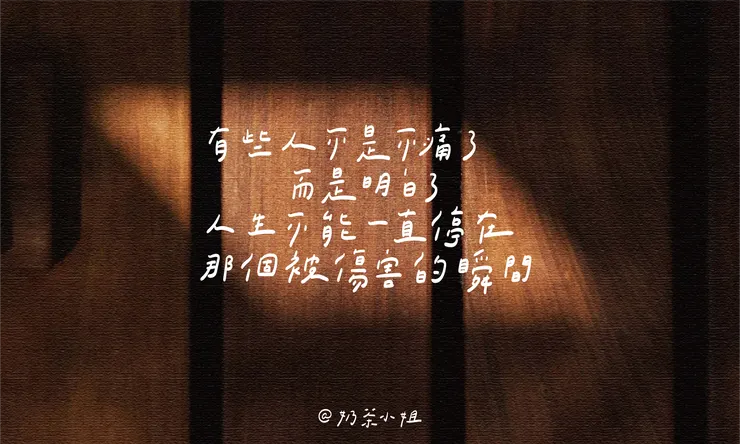 有些人不是不痛了
而是明白了
人生不能一直停在
那個被傷害的瞬間
@奶茶小姐